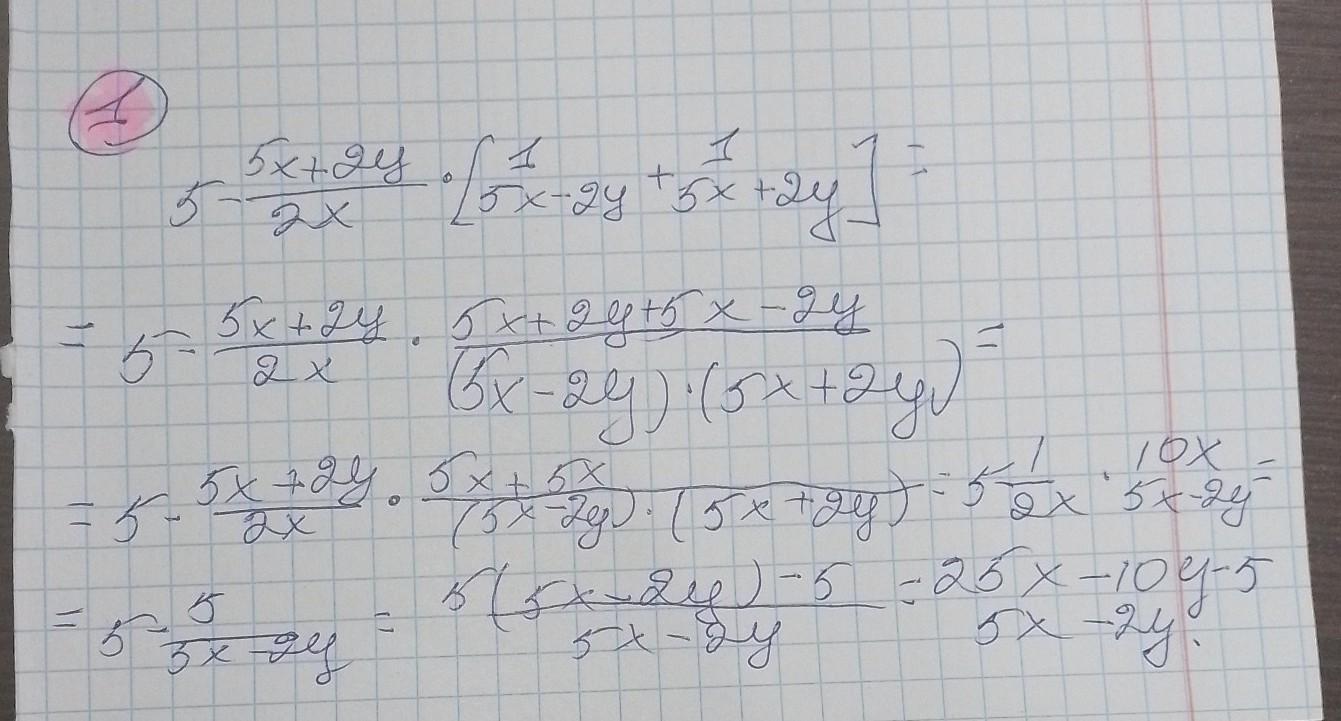 1
5 - (5x+2y)/(2x) · [1/(5x-2y) + 1/(5x+2y)] =
= 5 - (5x+2y)/(2x) · (5x+2y+5x-2y)/((5x-2y)·(5x+2y)) =
= 5 - (5x+2y)/(2x) · (5x+5x)/((5x-2y)·(5x+2y)) = 5 - 1/(2x) · 10x/(5x-2y) =
= 5 - 5/(5x-2y) = (5(5x-2y)-5)/(5x-2y) = (25x-10y-5)/(5x-2y).